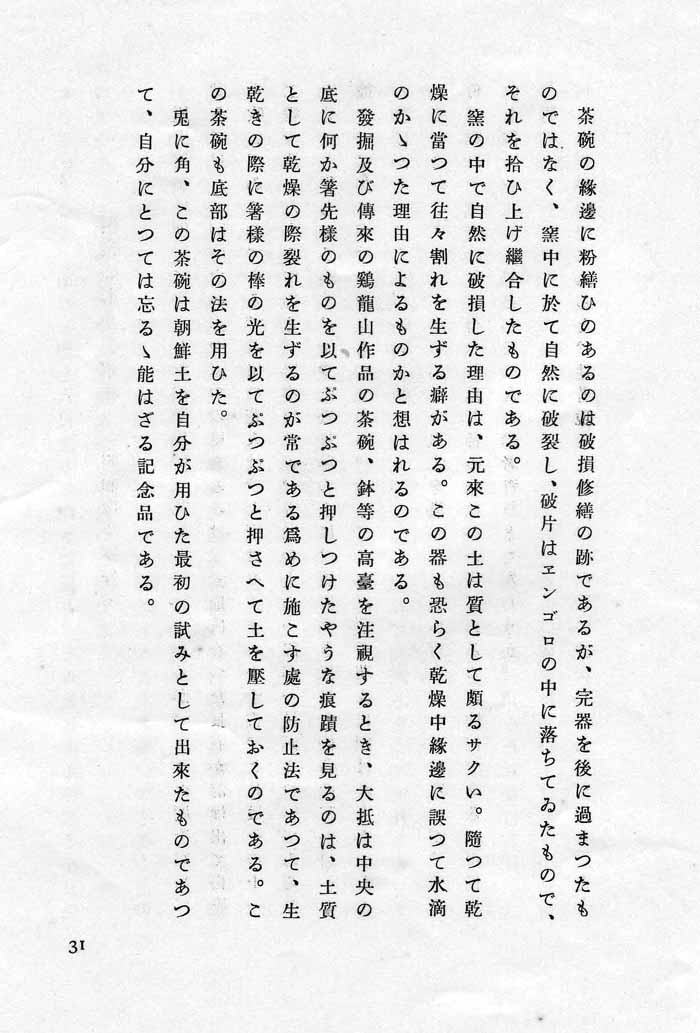 茶碗の緣邊に粉繕ひのあるのは破損修繕の跡であるが、完器を後に過まつたも
のではなく、窯中に於て自然に破裂し、破片はヱンゴロの中に落ちてゐたもので、
それを拾ひ上げ繼合したものである。
窯の中で自然に破損した理由は、元來この土は質として頗るサクい。隨つて乾
燥に當つて往々割れを生ずる癖がある。この器も恐らく乾燥中緣邊に誤つて水滴
のかゝつた理由によるものかと想はれるのである。
發掘及び傳來の鷄龍山作品の茶碗、鉢等の高臺を注視するとき、大抵は中央の
底に何か箸先樣のものを以てぷつぷつと押しつけたやうな痕蹟を見るのは、土質
として乾燥の際裂れを生ずるのが常である爲めに施こす處の防止法であつて、生
乾きの際に箸樣の棒の光を以てぷつぷつと押さへて土を壓しておくのである。こ
の茶碗も底部はその法を用ひた。
兎に角、この茶碗は朝鮮土を自分が用ひた最初の試みとして出來たものであつ
て、自分にとつては忘るゝ能はざる記念品である。
31